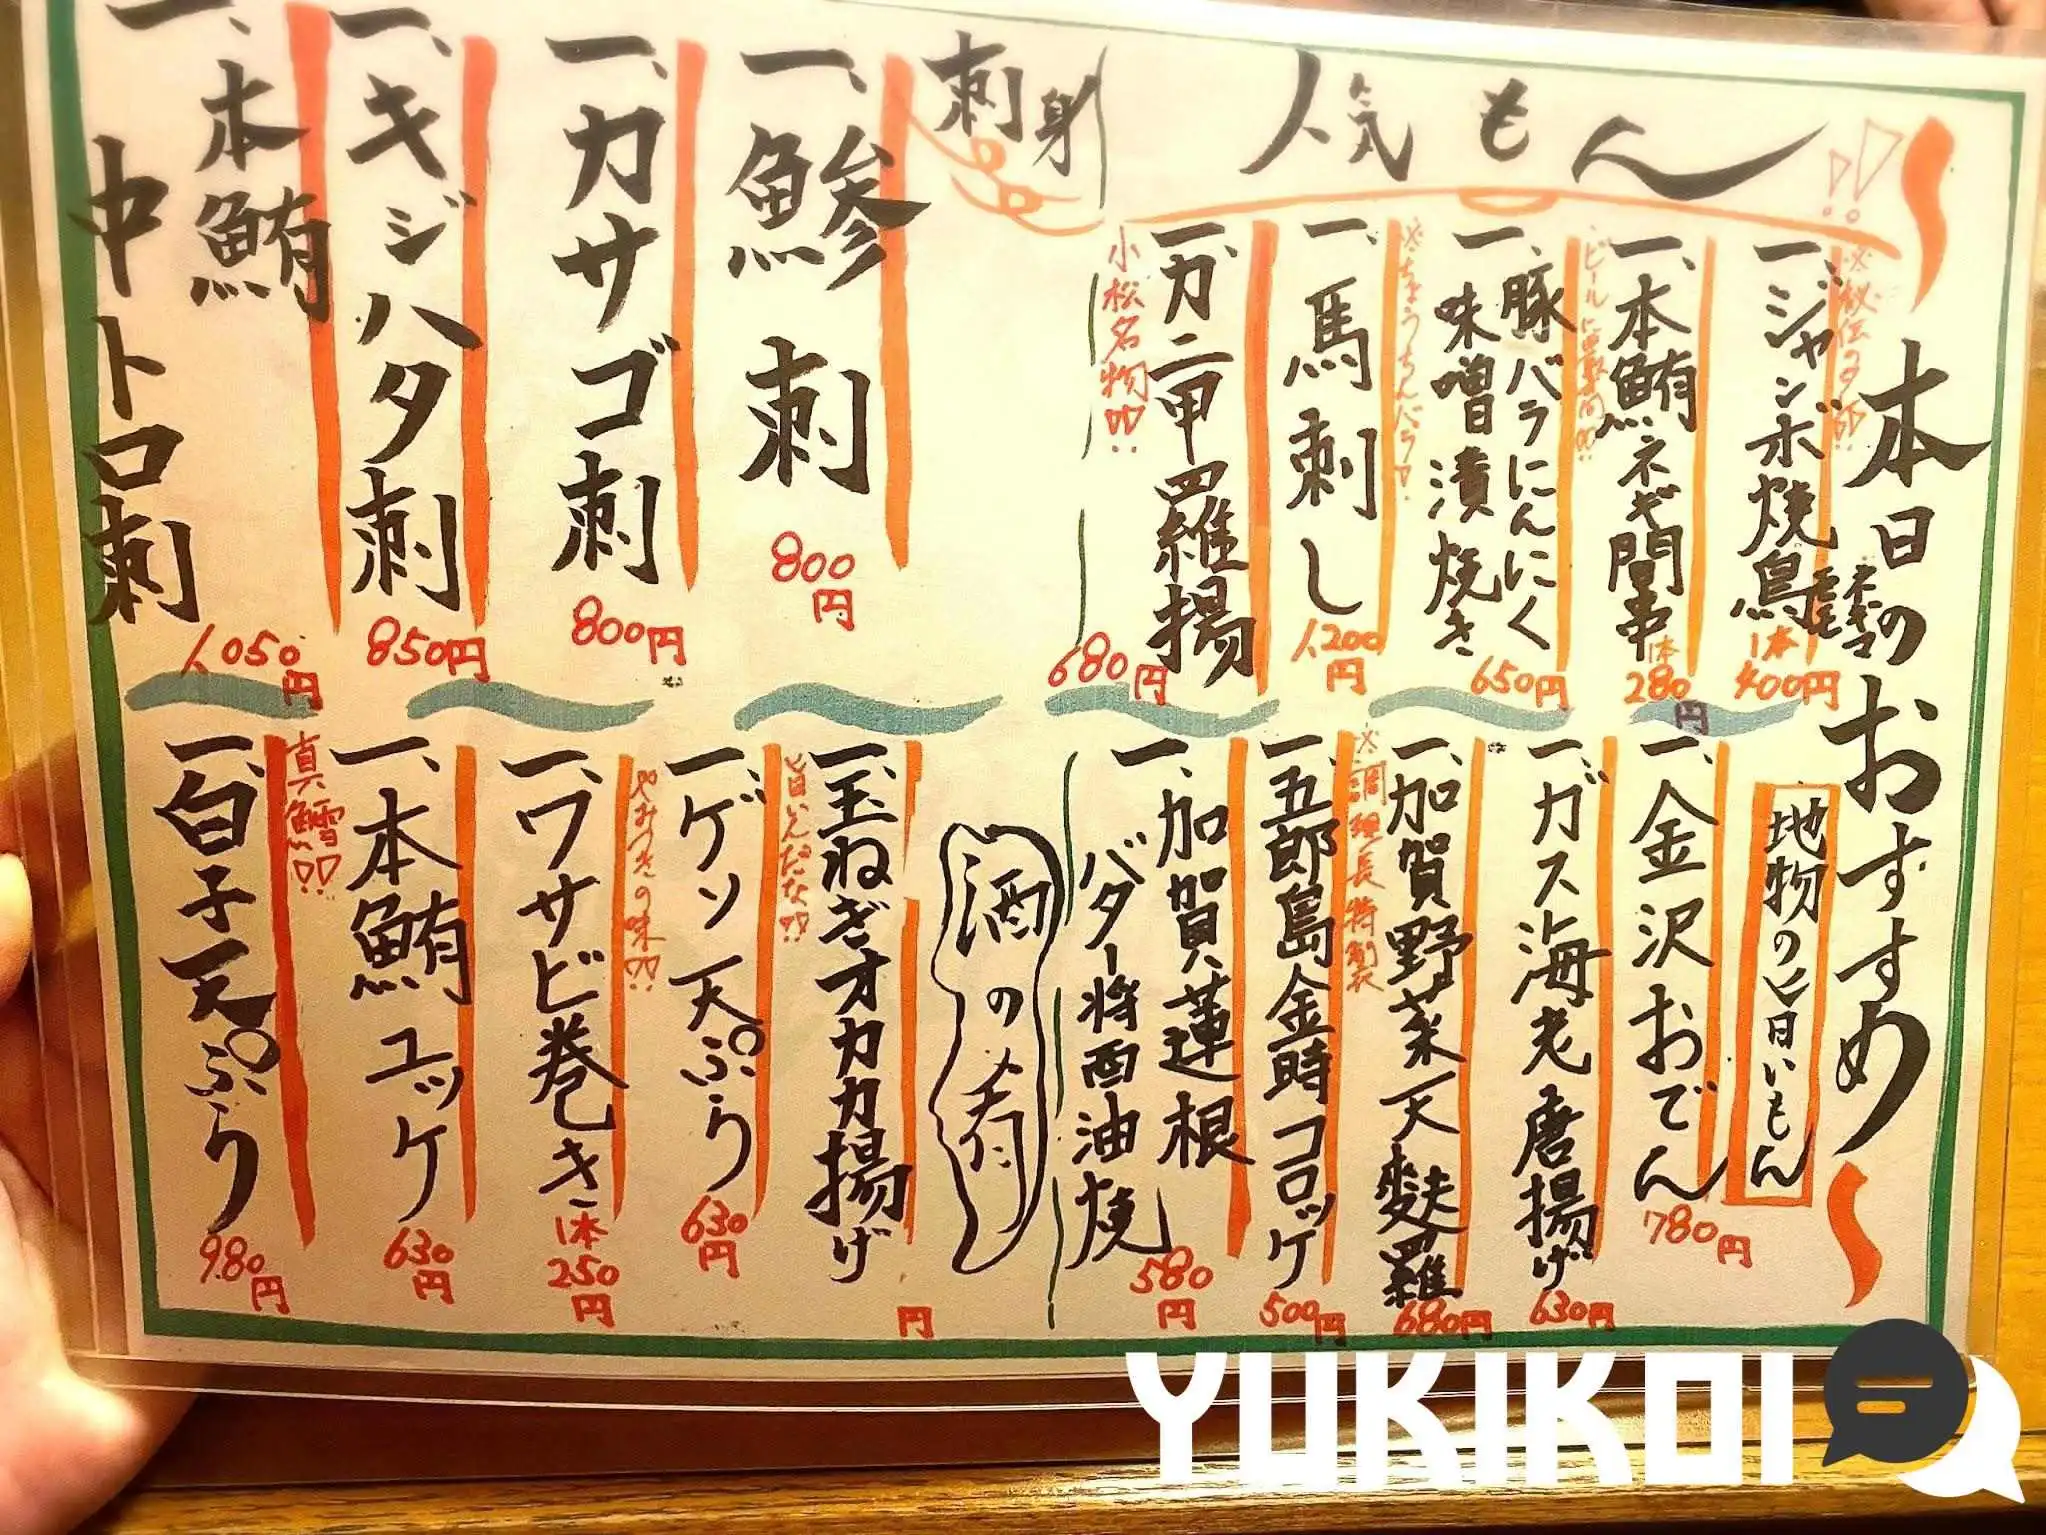 本日のおすすめ
人気もん
※秘伝のタレ!!
一、ジャンボ焼鳥
ネギマ
1本400円
一、本鮪ネギ間串
1本280円
ビールに最高!!
一、豚バラにんにく
味噌漬焼き
650円
一、馬刺し
1,200円
一、カニ甲羅揚
680円
小松名物!!
刺身
一、鯵刺
800円
一、カサゴ刺
800円
一、キジハタ刺
850円
一、本鮪
中トロ刺
1,050円
地物の旨いもん
一、金沢おでん
780円
一、ガス海老唐揚げ
630円
一、加賀野菜天麩羅
680円
※調理長特製
一、五郎島金時コロッケ
500円
一、加賀蓮根
バター将油焼
580円
酒の肴
一、玉ねぎオカカ揚げ
円
旨いんだな!!
一、ゲソ天ぷら
630円
やみつきの味!!
一、ワサビ巻き
1本250円
一、本鮪ユッケ
630円
真鱈!!
一、白子天ぷら
980円
YUKIKOI